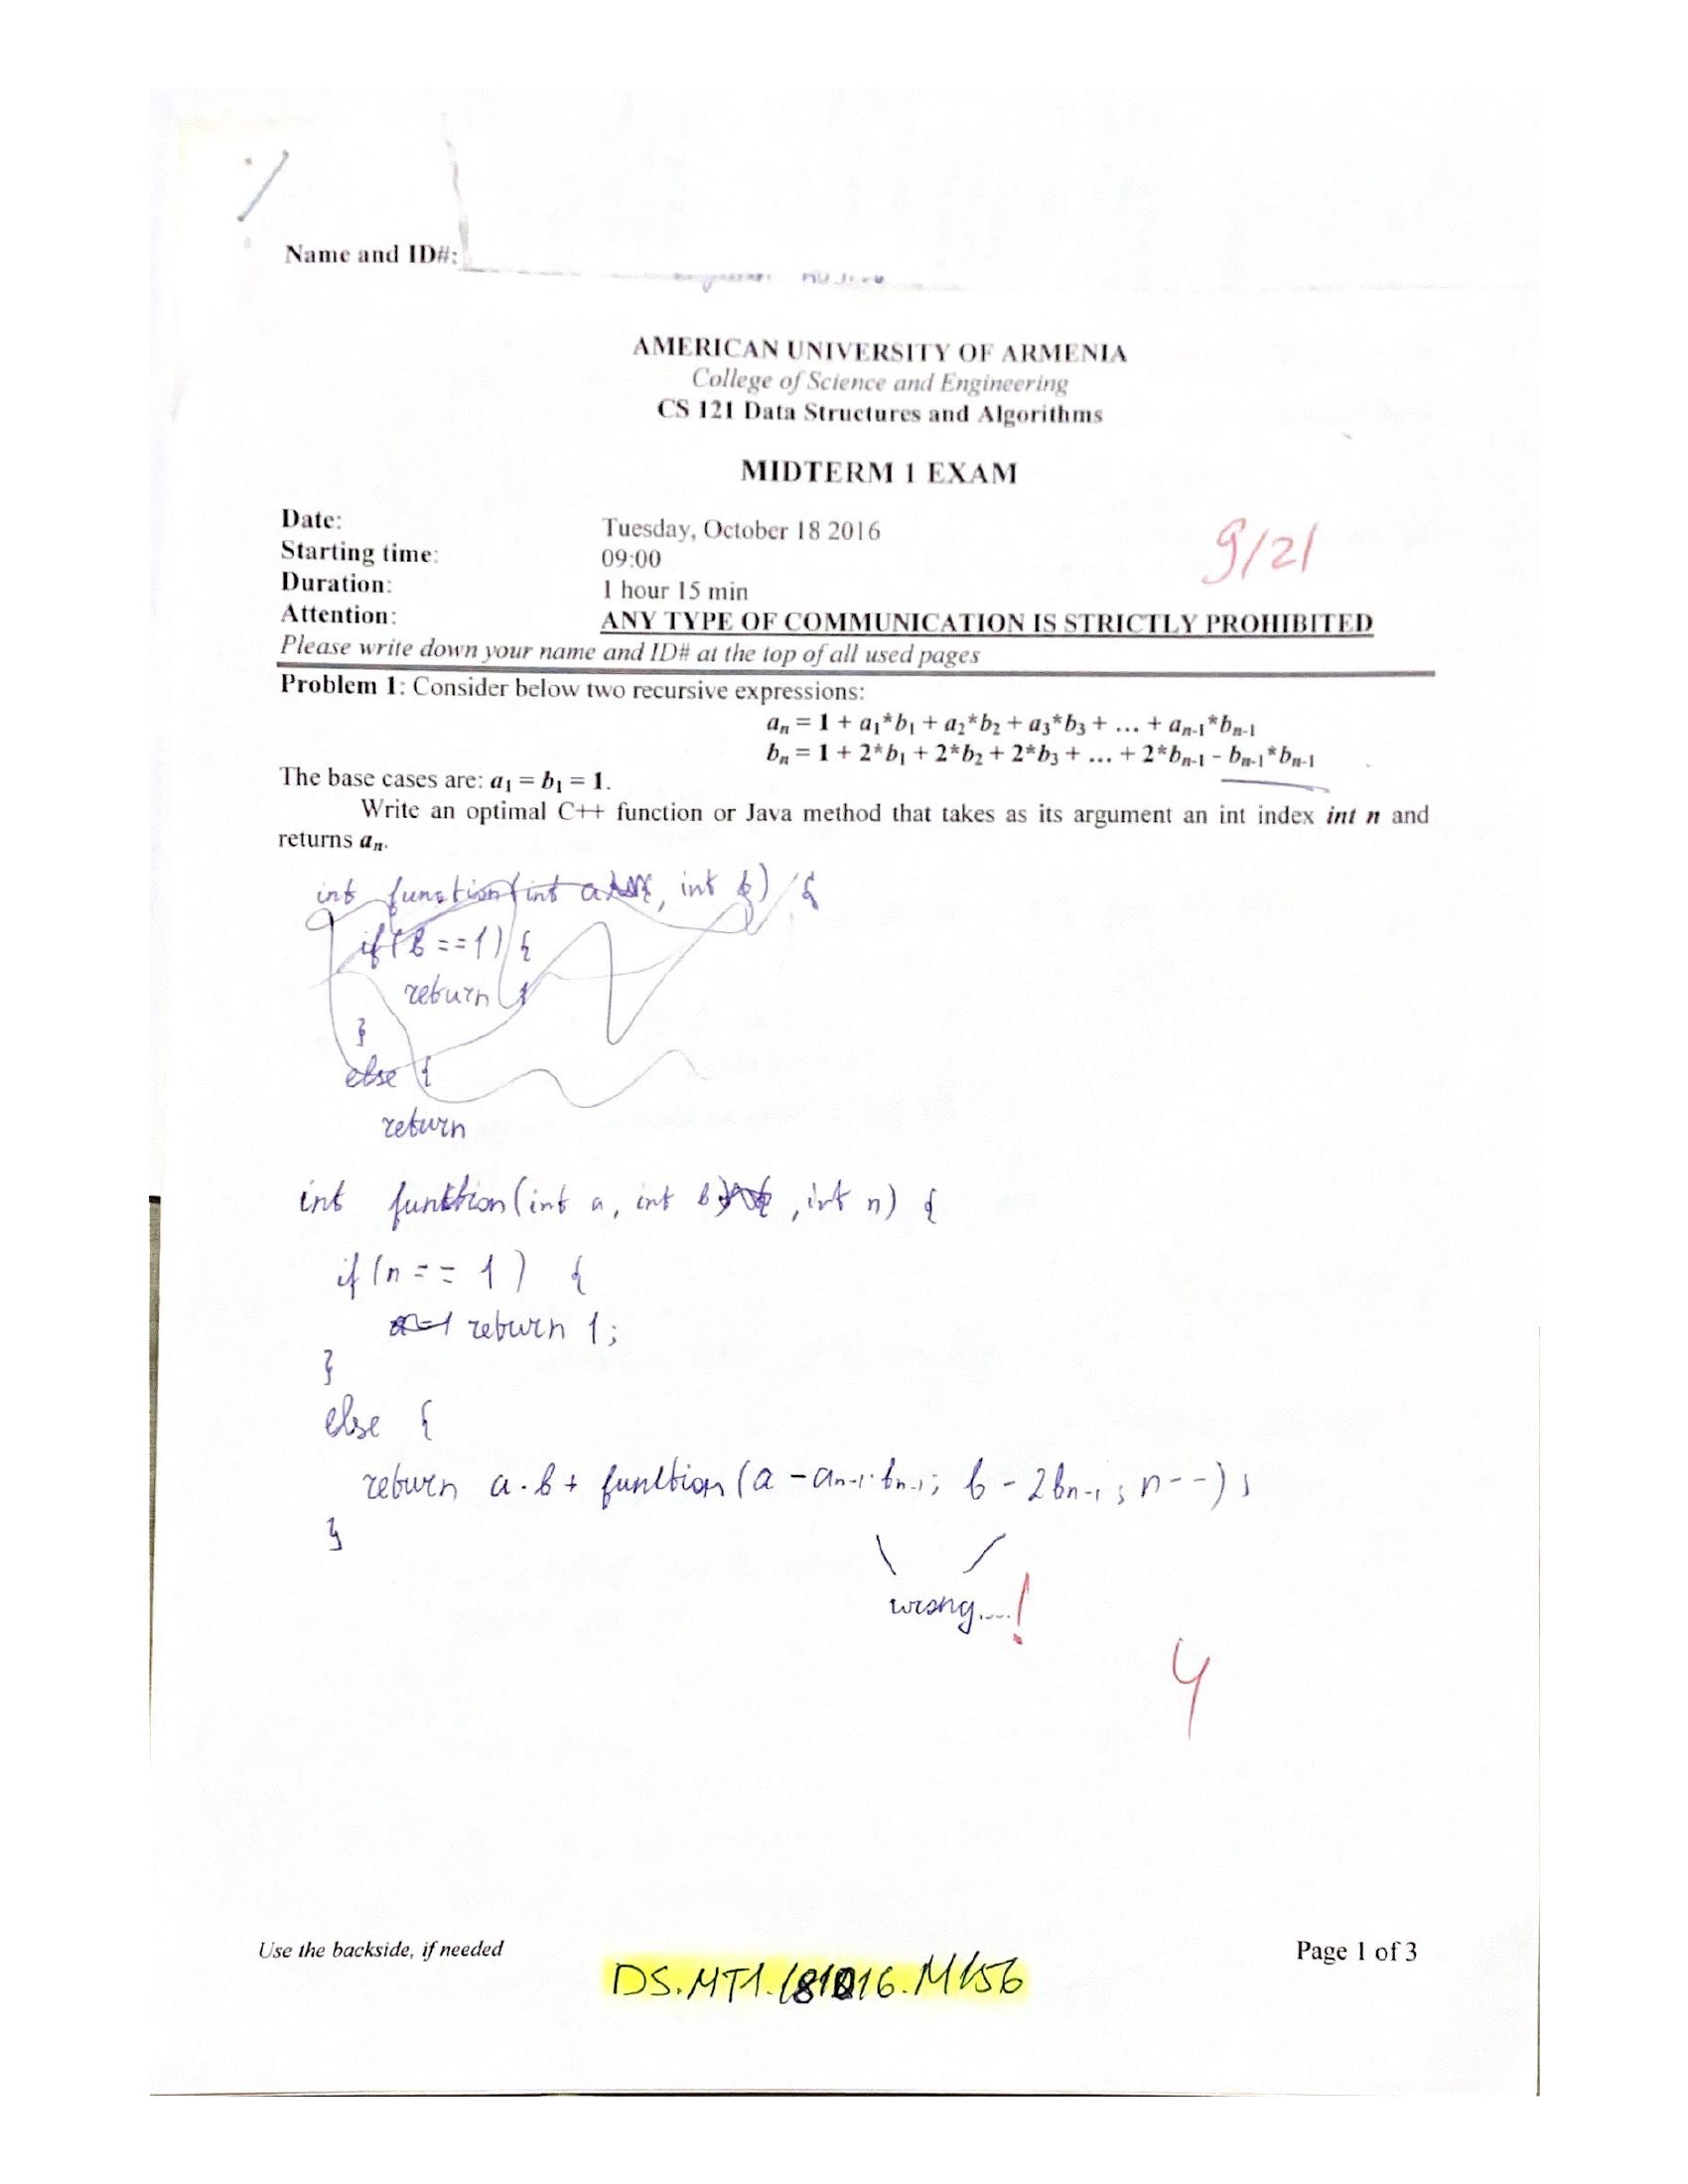 Name and ID#:
AMERICAN UNIVERSITY OF ARMENIA
College of Science and Engineering
CS 121 Data Structures and Algorithms
MIDTERM 1 EXAM
Date: Tuesday, October 18 2016
9/21
Starting time: 09:00
Duration: 1 hour 15 min
Attention: ANY TYPE OF COMMUNICATION IS STRICTLY PROHIBITED
Please write down your name and ID# at the top of all used pages
Problem 1: Consider below two recursive expressions:
aₙ = 1 + a₁*b₁ + a₂*b₂ + a₃*b₃ + ... + aₙ₋₁*bₙ₋₁
bₙ = 1 + 2*b₁ + 2*b₂ + 2*b₃ + ... + 2*bₙ₋₁ - bₙ₋₁*bₙ₋₁
The base cases are: a₁ = b₁ = 1.
Write an optimal C++ function or Java method that takes as its argument an int index int n and
returns aₙ.
int function(int a, int b) {
if(b == 1) {
return 1
}
else {
return
int function(int a, int b, int n) {
if (n == 1) {
a=1 return 1;
}
else {
return a·b + function (a - aₙ₋₁·bₙ₋₁; b - 2bₙ₋₁; n--);
}
wrong....!
4
Use the backside, if needed
Page 1 of 3
DS.MT1.181016.M156